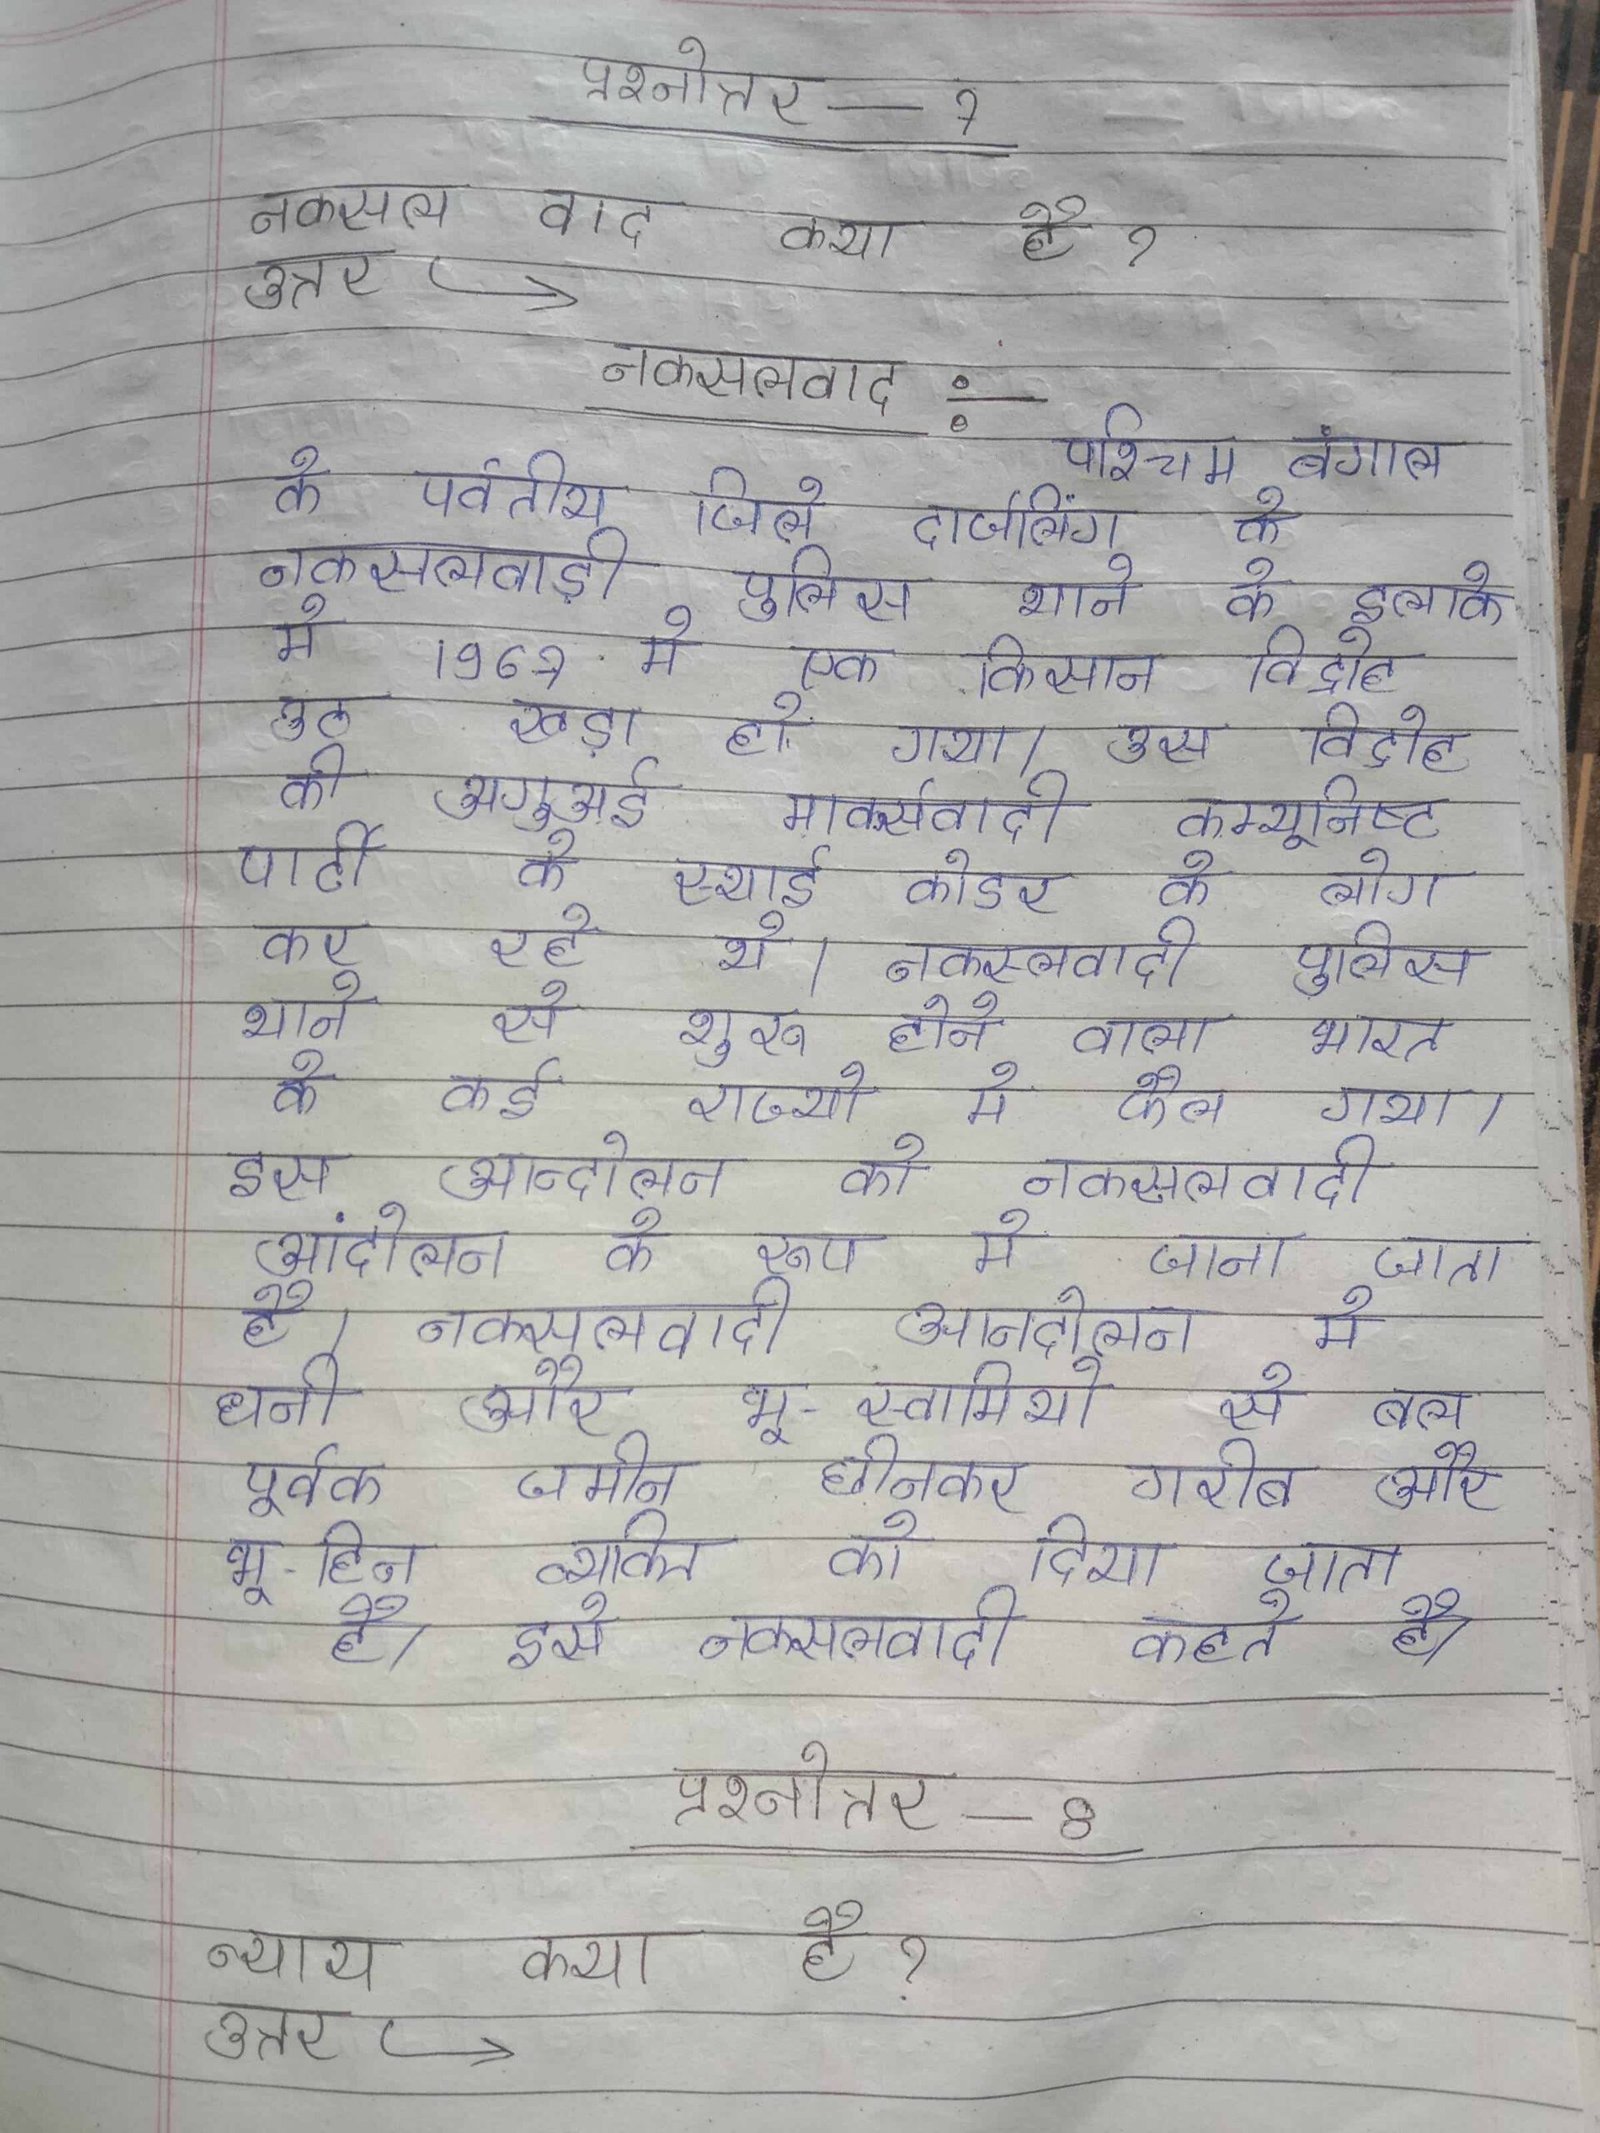 प्रश्नोत्तर — 7
नकसल वाद क्या है ?
उत्तर ↪
नकसलवाद ÷
पश्चिम बंगाल
के पर्वतीय जिले दार्जलिंग के
नकसलवाड़ी पुलिस थाने के इलाके
मे 1967 मे एक किसान विद्रोह
उठ खड़ा हो गया। उस विद्रोह
की अगुअई मार्क्सवादी कम्यूनिष्ट
पार्टी के स्थाई कोडर के लोग
कर रहे थे। नकस्लवादी पुलिस
थाने से शुरू होने वाला भारत
के कई राज्यो मे फैल गया।
इस आन्दोलन को नकसलवादी
आंदोलन के रूप मे जाना जाता
है। नकसलवादी आनदोलन मे
धनी और भू-स्वामियो से बल
पूर्वक जमीन छीनकर गरीब और
भू-हिन व्यक्ति को दिया जाता
है। इसे नकसलवादी कहते है।
प्रश्नोत्तर — 8
न्याय क्या है ?
उत्तर ↪